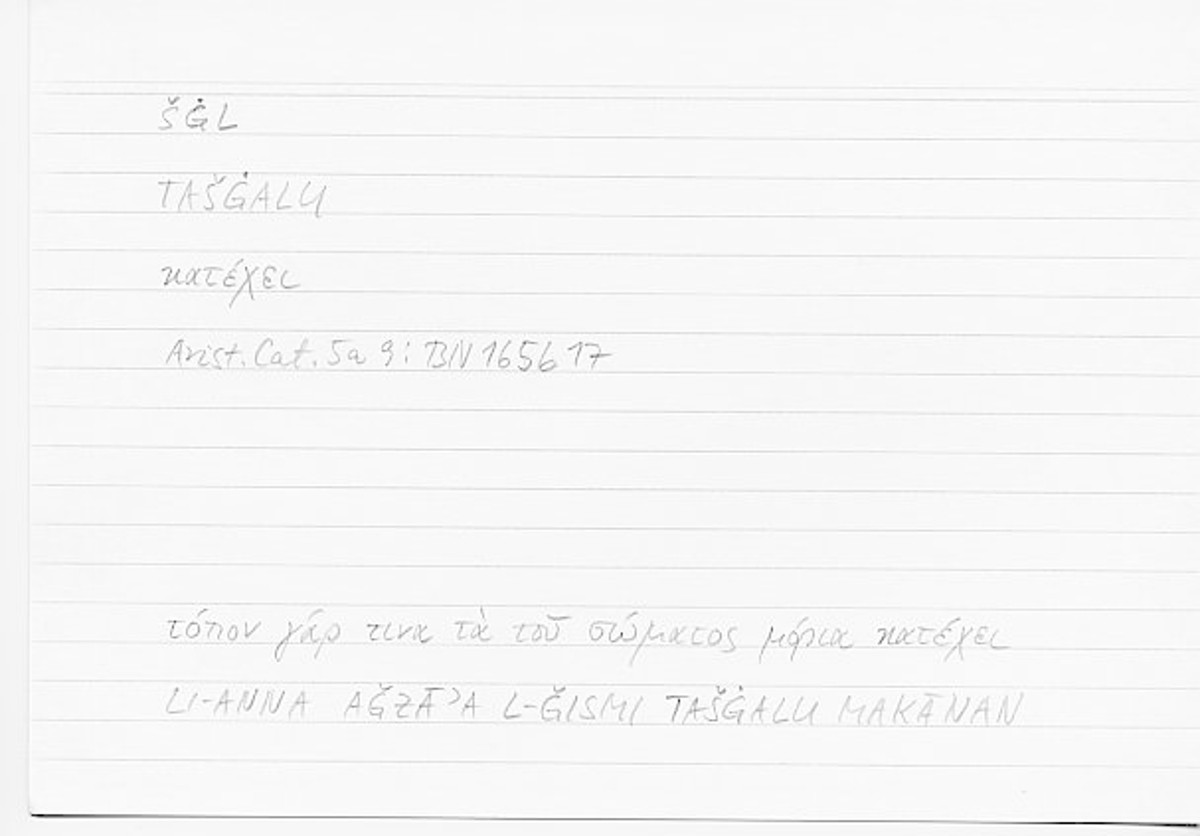 ŠĠL
TAŠĠALU
κατέχει
Arist. Cat. 5a 9: BN 165b 17
τόπον γάρ τινα τὰ τοῦ σώματος μόρια κατέχει
LI-ANNA AǦZĀʾA L-ǦISMI TAŠĠALU MAKĀNAN